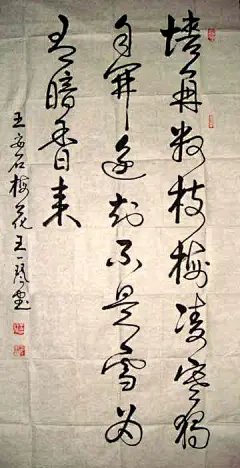 墙角数枝梅凌寒独
自开遥知不是雪为
有暗香来
王安石梅花 王一